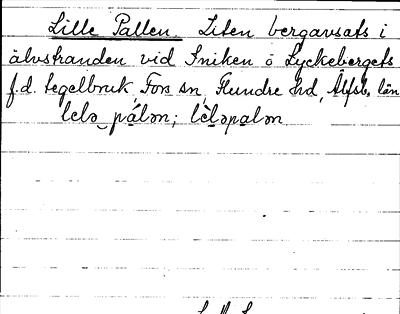 Lille Pallen. Liten bergavsats i
älvstranden vid Sniken ö Lyckebergets
f.d. tegelbruk Fors sn, Flundre hd, Älfsb. län
lɛlə pálən; lɛ̀ləpalən